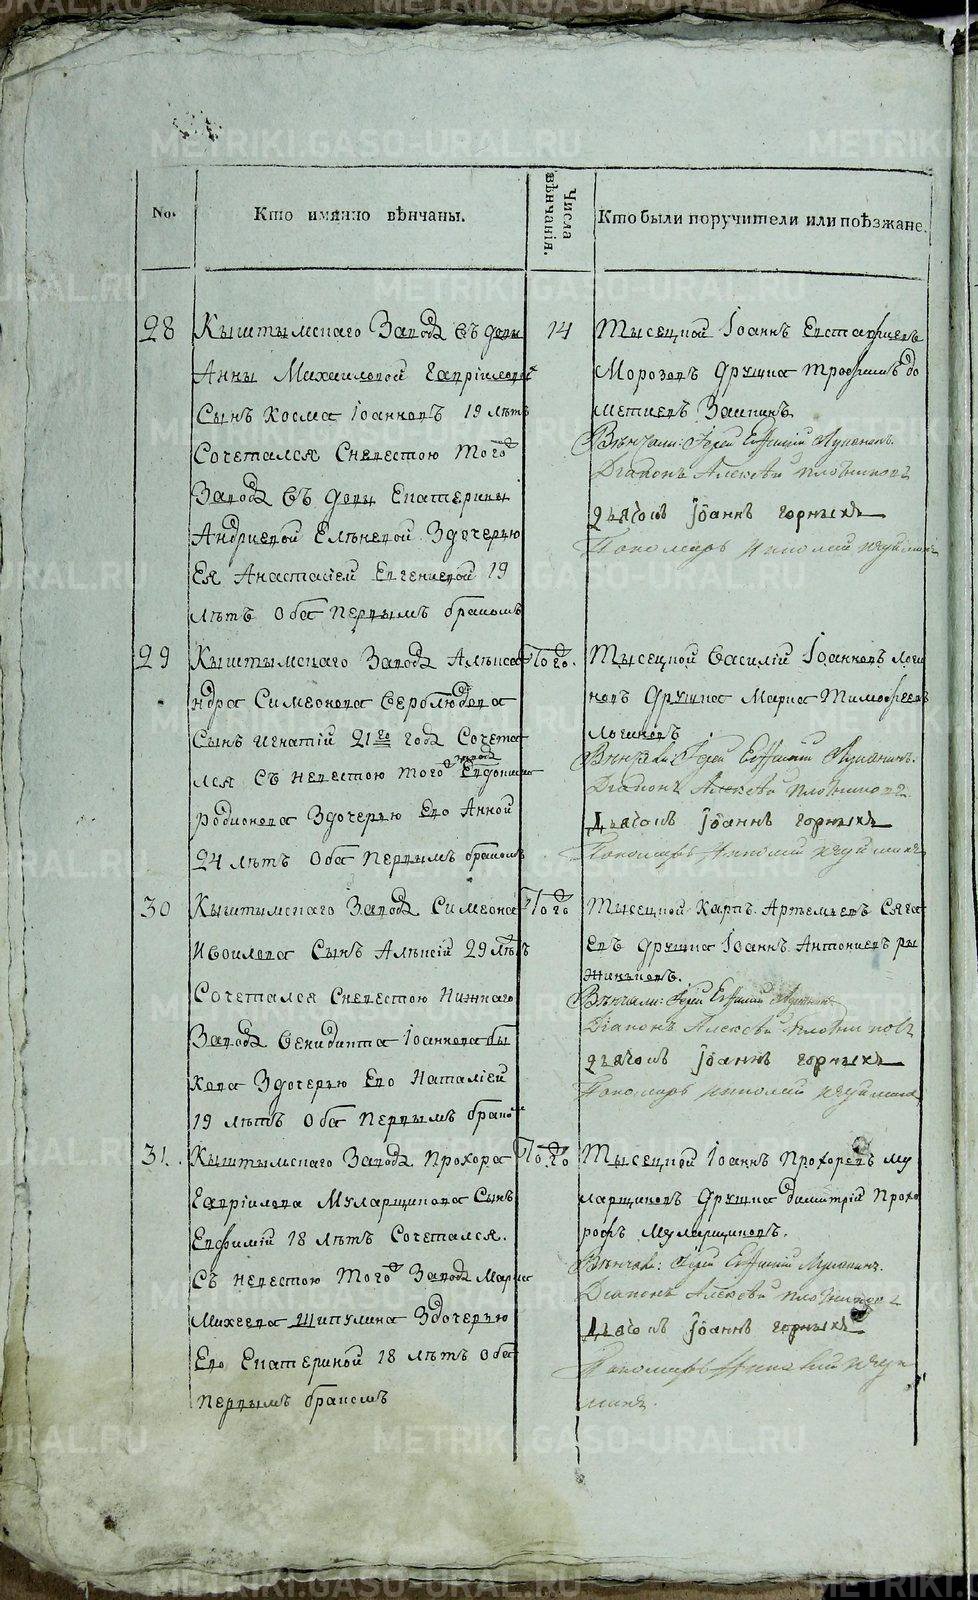 No.
Кто имянно вѣнчаны.
Числа вѣнчанія.
Кто были поручители или поѣзжане.
28
Кыштымскаго Завода вдовы
Анны Михаиловой Гавріиловой
Сынъ Косма Іоанновъ 19 лѣтъ
Сочетался Сневестою того
Завода вдовы Екатерины
Андриевой Здочерью
Ея Анастасіей Евгениевой 19
лѣтъ Оба первымъ бракомъ
14
Тысецкой Іоаннъ Евстафиевъ
Морозовъ Друшка Трофимъ До
метиевъ Заикинъ
Вѣнчали: Іерей Евфимій
Діаконъ Алексѣй Плотниковъ
Дьячокъ Іоаннъ Горныхъ
Пономарь
29
Кыштымскаго Завода Алѣкса
ндра Симеонова Серблюдова
Сынъ Игнатій 21го года Сочета
лся Съ невестою того завода Евдокима
Родионова Здочерью Его Анной
24 лѣтъ Оба первымъ бракомъ
Того.
Тысецкой Василій Іоанновъ Логи
новъ Друшка Марка Тимофеевъ
Логиновъ
Вѣнчали: Іерей Евфимій
Діаконъ Алексѣй Плотниковъ
Дьячокъ Іоаннъ Горныхъ
Пономарь
30
Кыштымскаго Завода Симеона
Ивоилова Сынъ Алѣксій 29 лѣтъ
Сочетался Сневестою Нижнаго
Завода Бенидикта Іоаннова Бы
кова Здочерью Его Наталіей
19 лѣтъ Оба первымъ бракомъ
Того
Тысецкой Карпъ Артемьевъ Сяга
евъ Друшка Іоаннъ Антониевъ Ры
жинъковъ.
Вѣнчали: Іерей Евфимій
Діаконъ Алексѣй Плотниковъ
Дьячокъ Іоаннъ Горныхъ
Пономарь
31.
Кыштымскаго Завода Прохора
Гавріилова Муларщикова Сынъ
Евфимій 18 лѣтъ Сочетался.
Съ невестою того Завода Марка
Михеева Шипулина Здочерью
Его Екатериной 18 лѣтъ Оба
первымъ бракомъ
Того
Тысецкой Іоаннъ Прохоровъ Му
ларщиковъ Друшка Димитрій Прохо
ровъ Муларщиковъ.
Вѣнчали: Іерей Евфимій
Діаконъ Алексѣй Плотниковъ
Дьячокъ Іоаннъ Горныхъ
Пономарь
METRIKI.GASO-URAL.RU